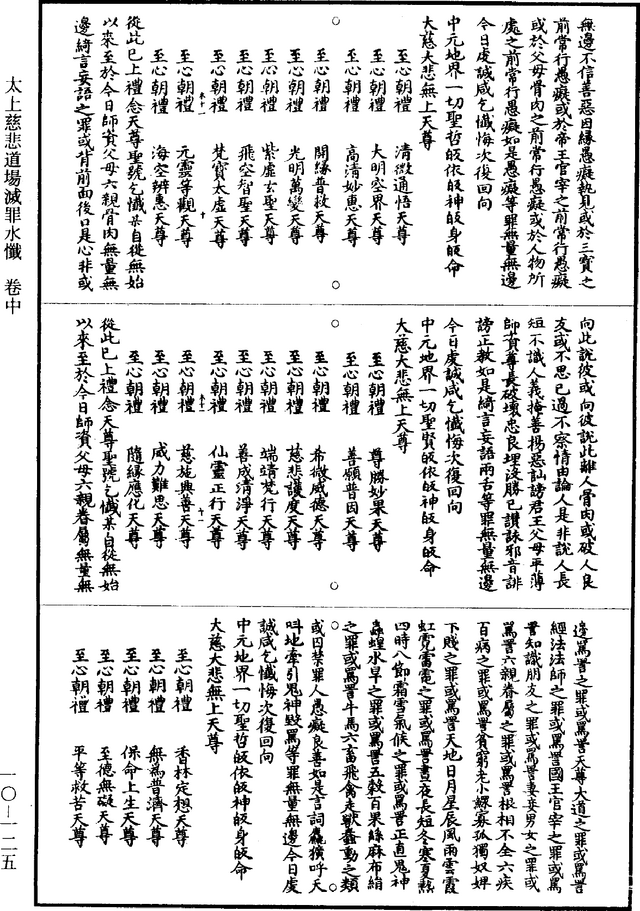 無邊不信善惡因緣愚癡執見或於三寶之
前常行愚癡或於帝王官宰之前常行愚癡
或於父母骨肉之前常行愚癡或於人物所
處之前常行愚癡如是愚癡等罪無量無邊
今日虔誠咸乞懺悔次復回向
中元地界一切聖哲皈依皈神皈身皈命
大慈大悲無上天尊
至心朝禮 清微通悟天尊
至心朝禮 大明空界天尊
至心朝禮 高清妙惠天尊
至心朝禮 開緣普救天尊
至心朝禮 光明萬變天尊
至心朝禮 紫虛玄聖天尊
至心朝禮 飛空智聖天尊
至心朝禮 梵寶太虛天尊
至心朝禮 元靈等觀天尊
至心朝禮 海空辨惠天尊
從此已上禮念天尊聖號乞懺某自從無始
以來至於今日師資父母六親骨肉無量無
邊綺言妄語之罪或背前面後口是心非或
向此說彼或向彼說此離人骨肉或破人良
友或不思已過不察情由論人是非說人長
短不識人義掩善揚惡訕謗君王父母平薄
師資尊長破壞忠良埋沒勝已讚詠邪音誹
謗正教如是綺言妄語兩舌等罪無量無邊
今日虔誠咸乞懺悔次復回向
中元地界一切聖賢皈依皈神皈身皈命
大慈大悲無上天尊
至心朝禮 尊勝妙果天尊
至心朝禮 善願普因天尊
至心朝禮 希微威德天尊
至心朝禮 慈悲護度天尊
至心朝禮 端靖梵行天尊
至心朝禮 善成清淨天尊
至心朝禮 仙靈正行天尊
至心朝禮 慈施興善天尊
至心朝禮 威力難思天尊
至心朝禮 隨緣應化天尊
從此已上禮念天尊聖號乞懺某自從無始
以來至於今日師資父母六親眷屬無量無
邊罵詈之罪或罵詈天尊大道之罪或罵詈
經法法師之罪或罵詈國王官宰之罪或罵
詈知識朋友之罪或罵詈妻妾男女之罪或
罵詈六親眷屬之罪或罵詈根相不全六疾
百病之罪或罵詈貧窮老小鰥寡孤獨奴婢
下賤之罪或罵詈天地日月星辰風雨雲霞
虹霓雷電之罪或罵詈晝夜長短冬寒夏熱
四時八節霜雪氣候之罪或罵詈正直鬼神
蟲蝗水旱之罪或罵詈五穀百果絲麻布絹
之罪或罵詈牛馬六畜飛禽走獸蠢動之類
或囚禁罪人愚癡良善如是言詞麤獷呼天
叫地牽引鬼神毀罵等罪無量無邊今日虔
誠咸乞懺悔次復回向
中元地界一切聖哲皈依皈神皈身皈命
大慈大悲無上天尊
至心朝禮 香林定想天尊
至心朝禮 無為普濟天尊
至心朝禮 保命上生天尊
至心朝禮 至德無礙天尊
至心朝禮 平等救苦天尊
太上慈悲道場滅罪水懺 卷中
一〇—一二五